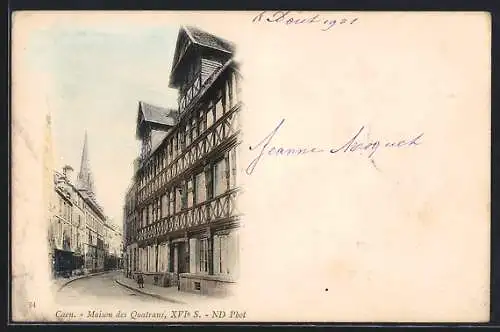 Août 1901
Jeanne Mocquet
34
Caen. - Maison des Quatrans, XVIe S. - ND Phot